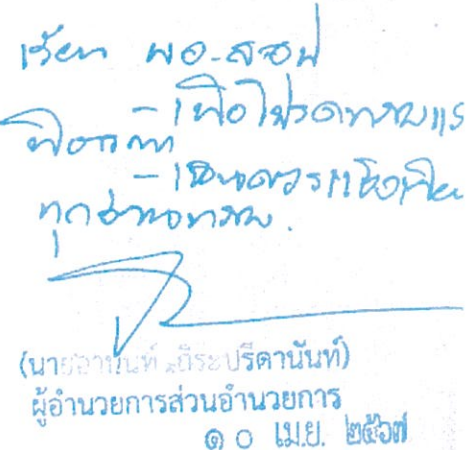 เรียน ผอ.สจป
- เพื่อโปรดทราบแ
พิจารณา
- เห็นควรแจ้งเวียน
ทุกอำเภอทราบ.
(นาย ปรีดานันท์)
ผู้อำนวยการส่วนอำนวยการ
๑๐ เม.ย. ๒๕๖๗